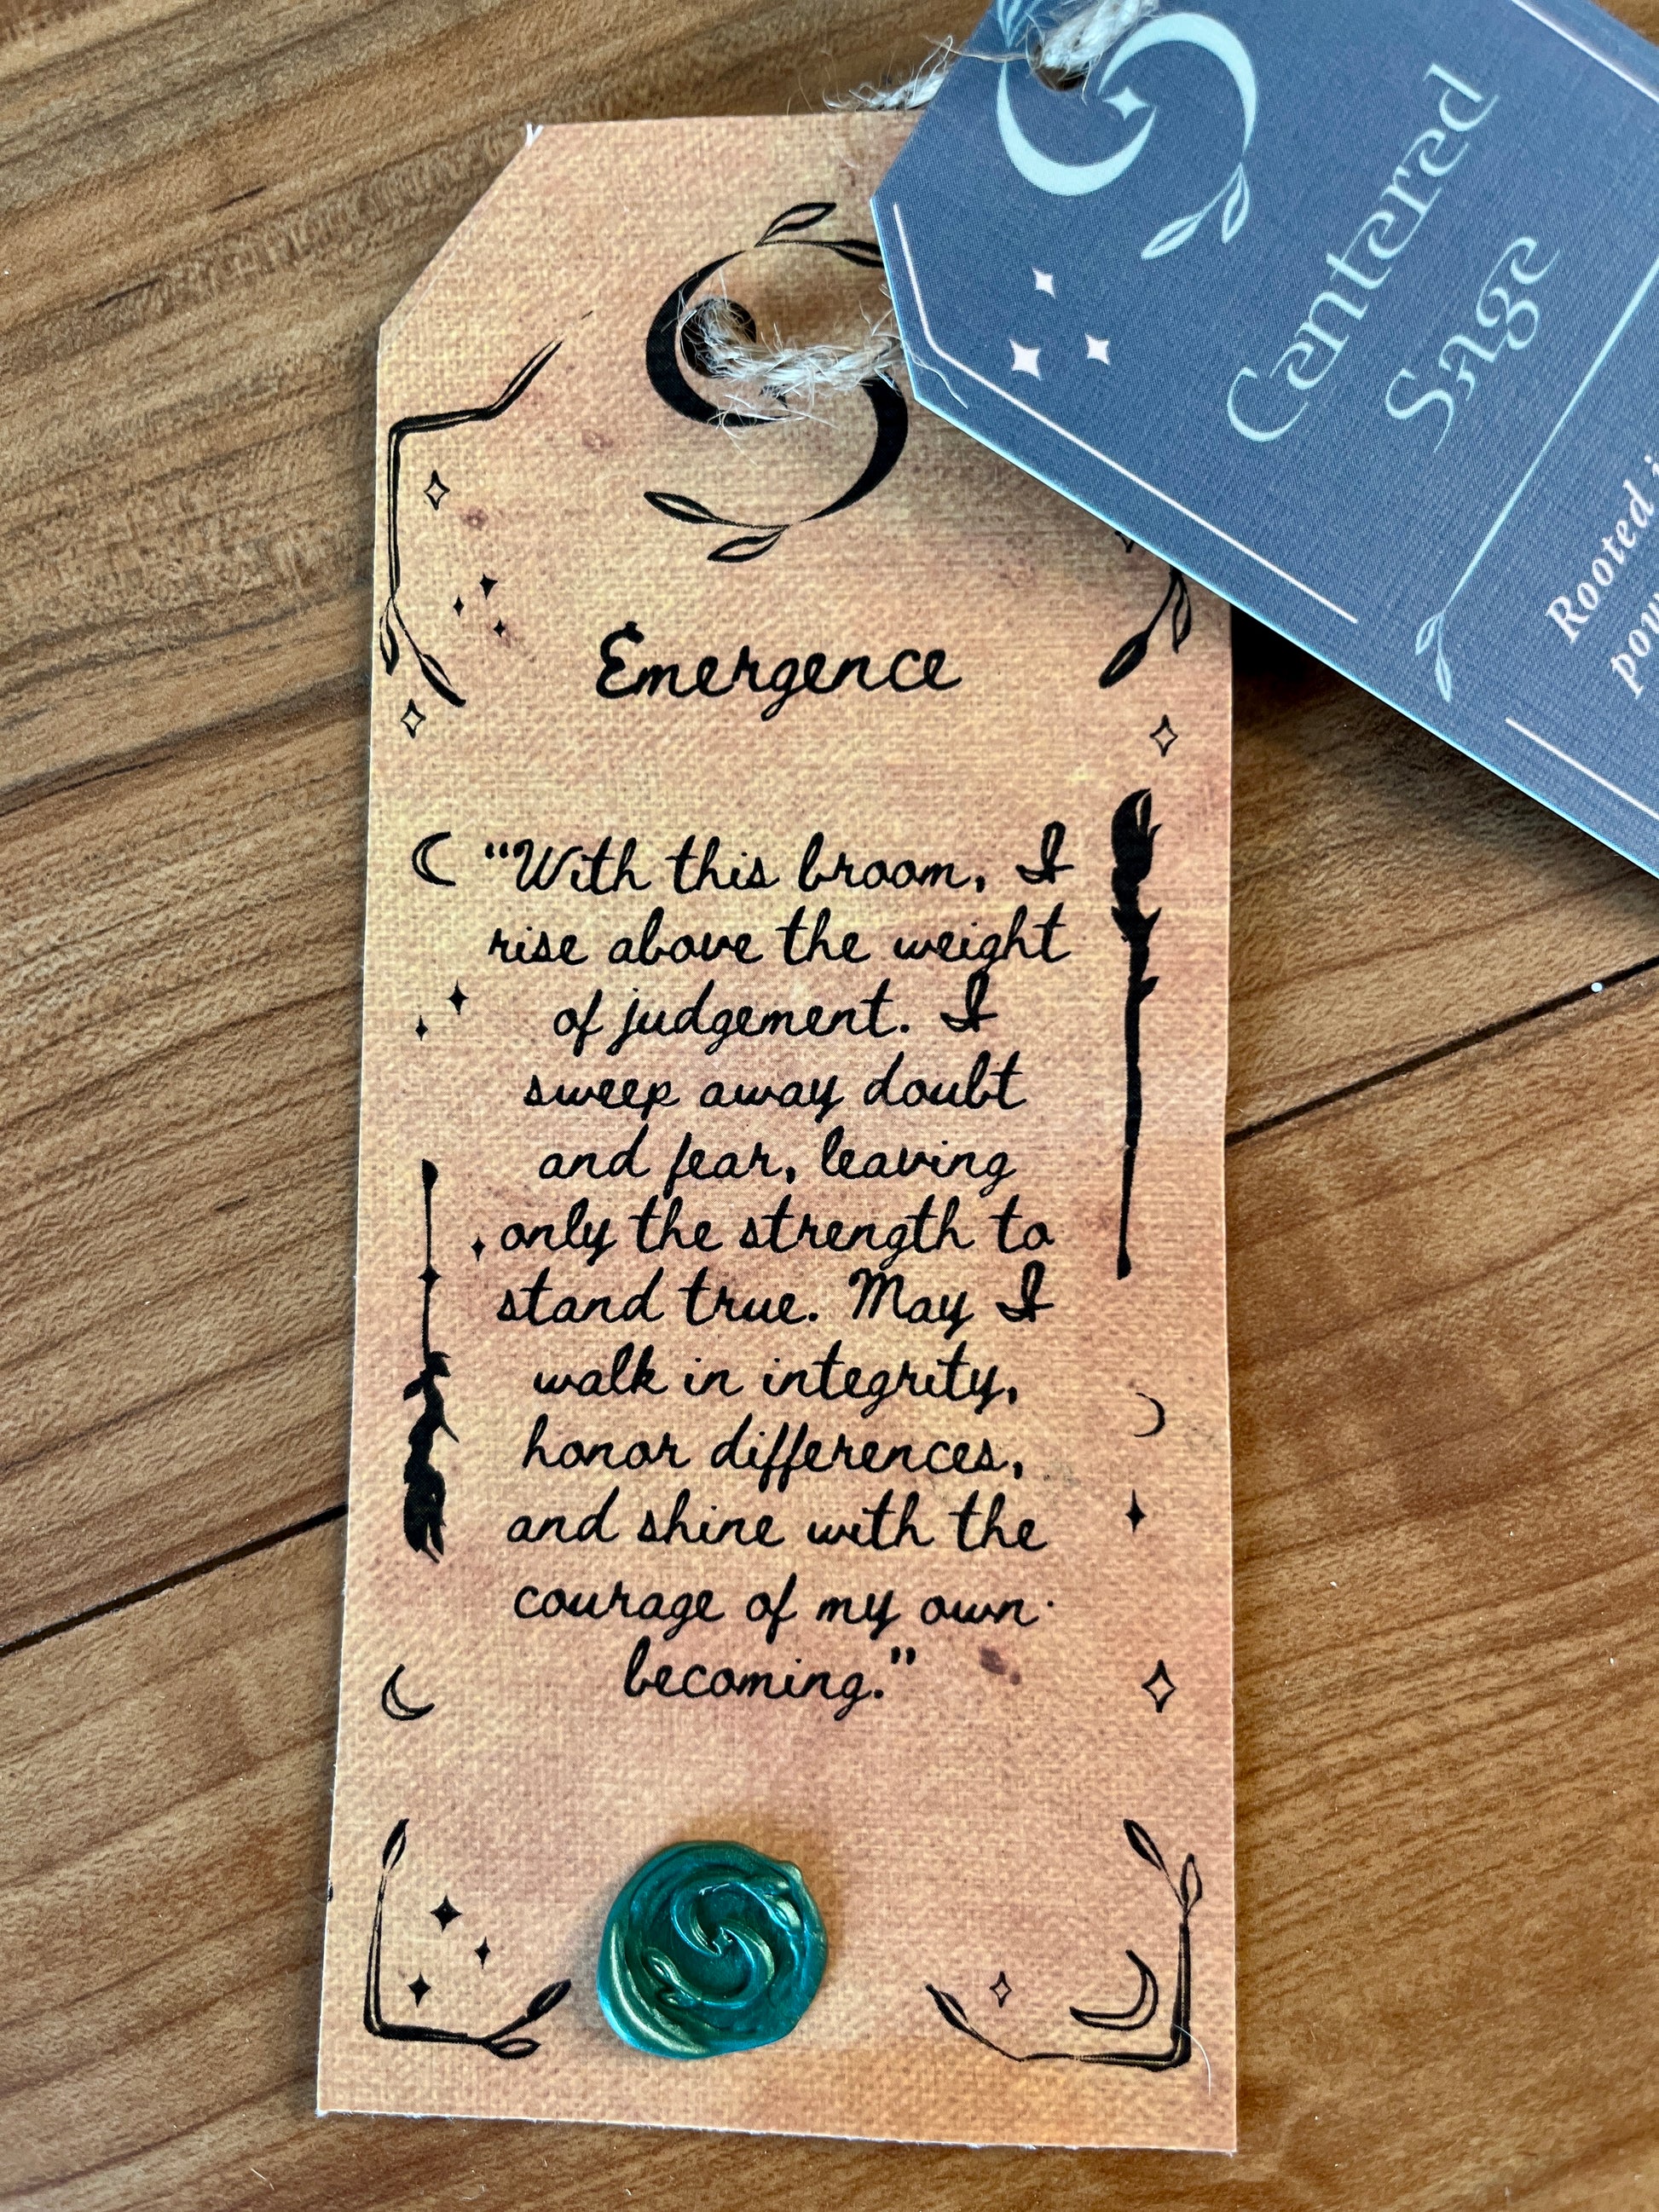 Centered
Sage
Rooted
Emergence
"With this broom, I
rise above the weight
of judgement. I
sweep away doubt
and fear, leaving
only the strength to
stand true. May I
walk in integrity,
honor differences,
and shine with the
courage of my own
becoming."